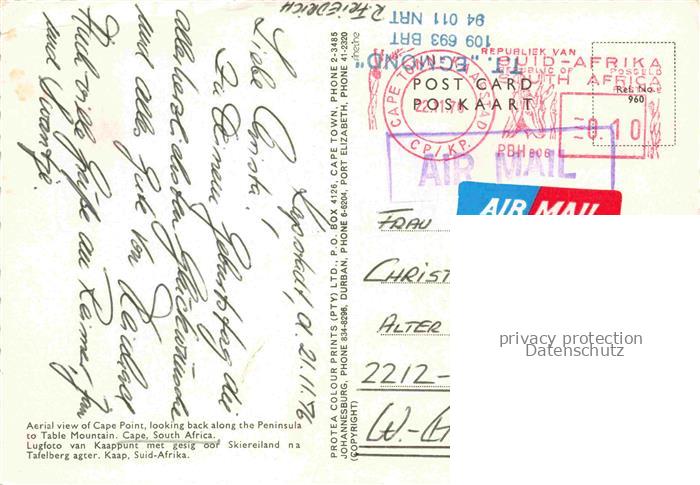 R. FRIEDRICH
TT. "EGMOND"
109 693 BRT
94 011 NRT
Kapstadt, d. 21.11.76
Liebe Christa!
Zu Deinem Geburtstag die
allerherzlichsten Glückwünsche
und alles Gute von
Auch viele Grüße an Reimer,
und
PROTEA COLOUR PRINTS (PTY) LTD., P.O. BOX 4126, CAPE TOWN, PHONE 2-3485
JOHANNESBURG, PHONE 834-8296, DURBAN, PHONE 6-6204, PORT ELIZABETH, PHONE 41-2320
(COPYRIGHT)
Aerial view of Cape Point, looking back along the Peninsula
to Table Mountain. Cape, South Africa.
Lugfoto van Kaappunt met gesig oor Skiereiland na
Tafelberg agter. Kaap, Suid-Afrika.
POST CARD
POSKAART
REPUBLIEK VAN
SUID-AFRIKA
REPUBLIC OF
SOUTH AFRICA
CAPE TOWN KAAPSTAD
22.XI.76
CP/KP.
0.10
PBH 606
Ref. No.
960
AIR MAIL
AIR MAIL
FRAU
CHRIST
ALTER
2212-
W.-
privacy protection
Datenschutz